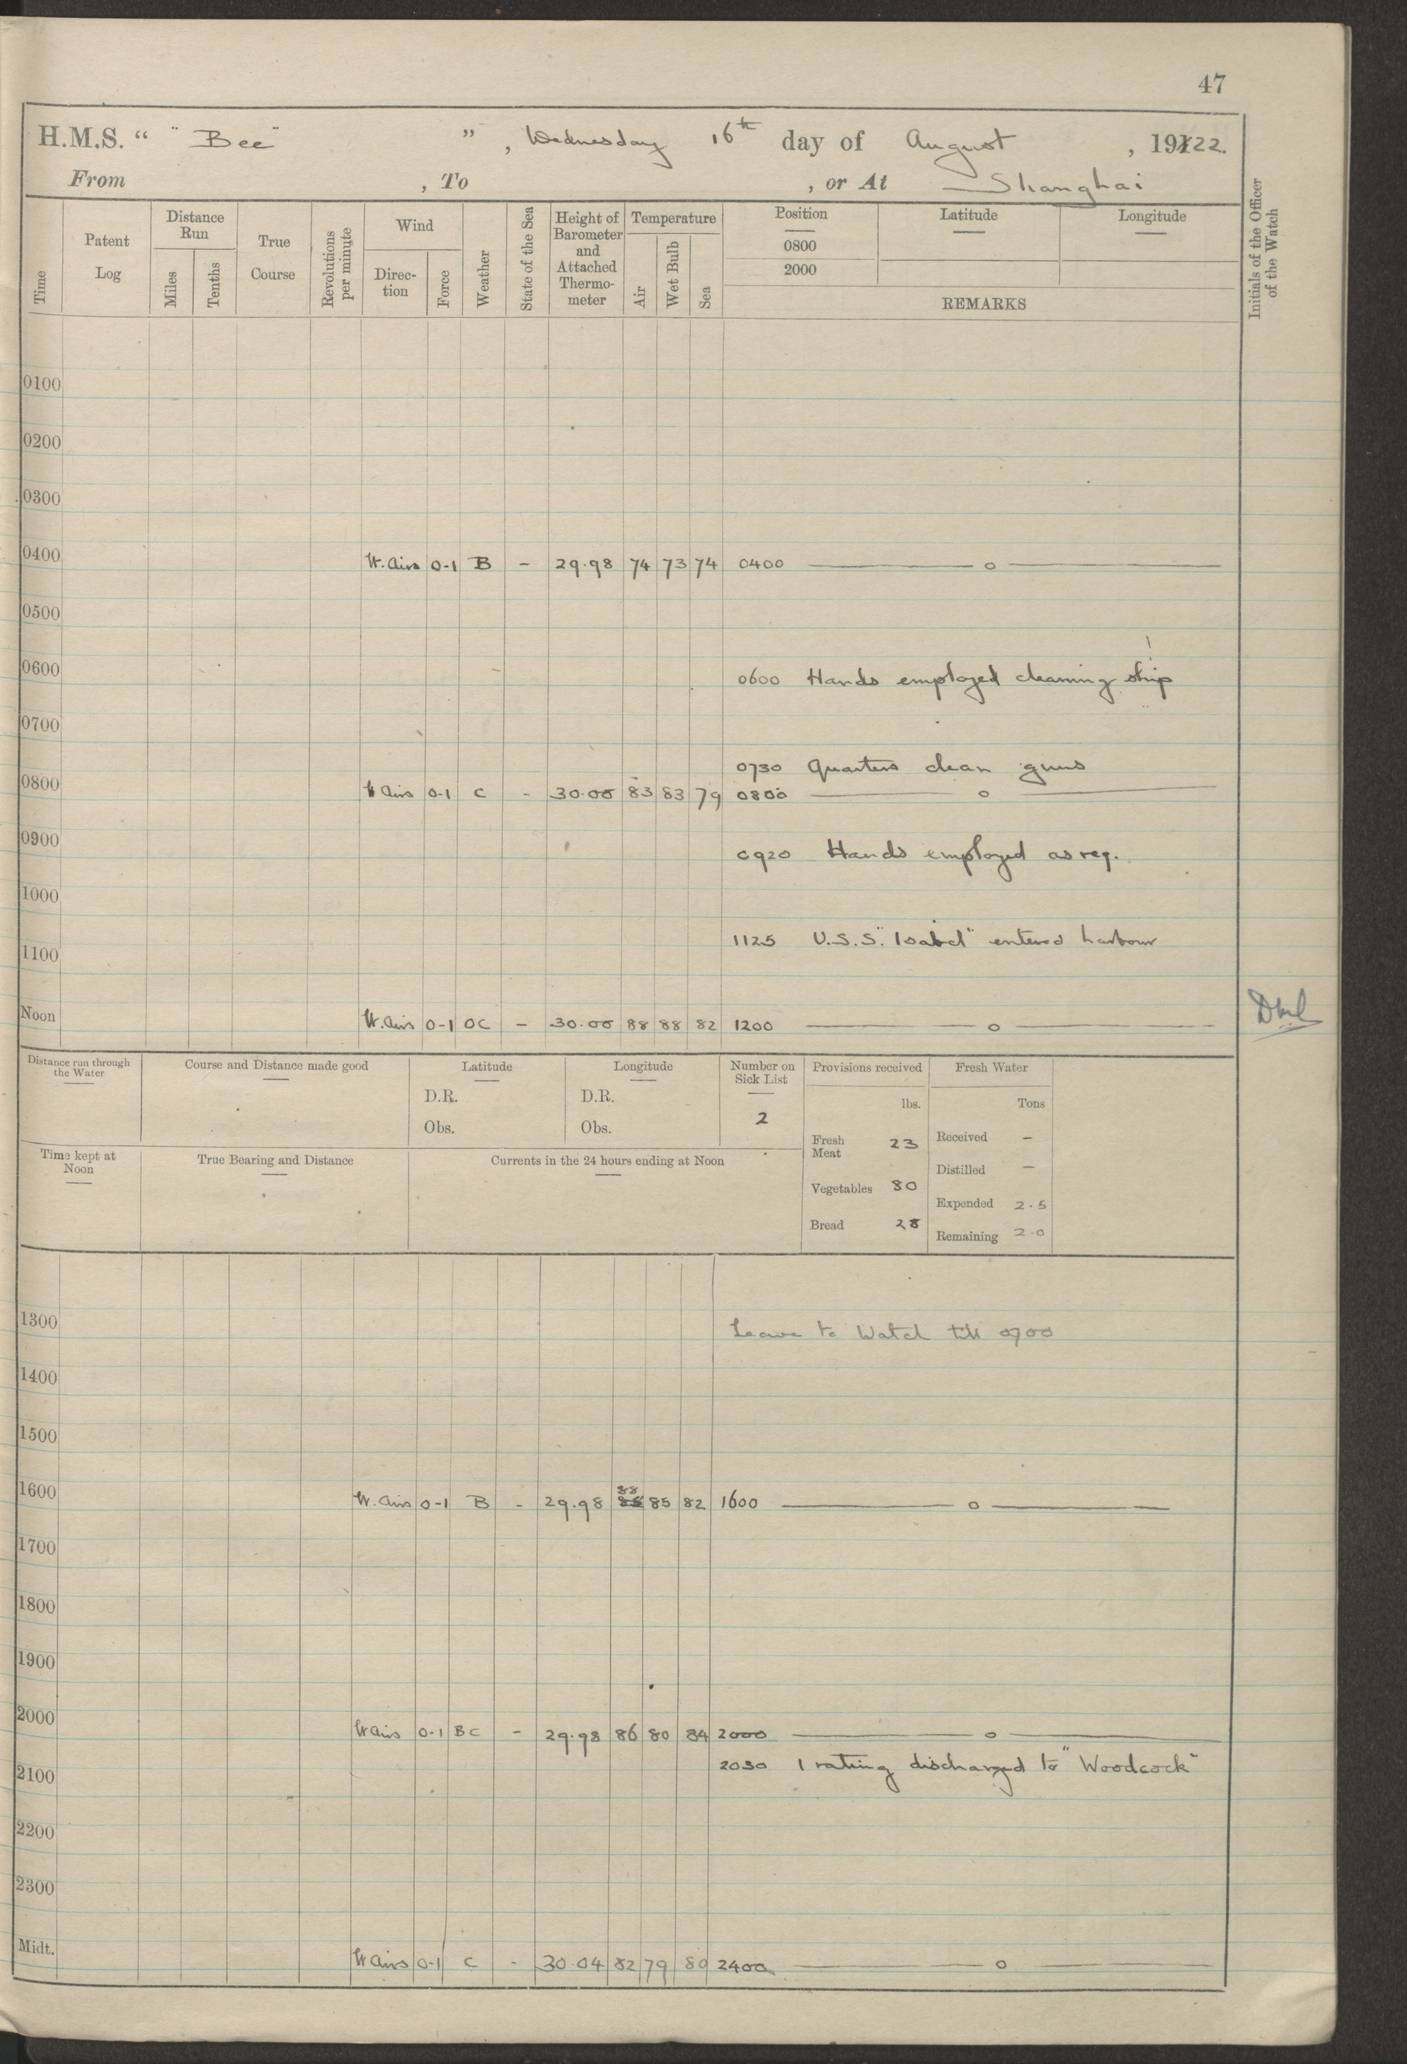 47
H.M.S. “ "Bee" ”, Wednesday 16th day of August, 1922.
From , To , or At Shanghai
Time
Patent Log
Distance Run
Miles
Tenths
True Course
Revolutions per minute
Wind
Direc-tion
Force
Weather
State of the Sea
Height of Barometer and Attached Thermo-meter
Temperature
Air
Wet Bulb
Sea
Position
0800
2000
Latitude
Longitude
REMARKS
Initials of the Officer of the Watch
0100
0200
0300
0400 W. Airs 0-1 B - 29.98 74 73 74 0400 — o —
0500
0600 0600 Hands employed cleaning ship
0700
0730 Quarters clean guns
0800 W Airs 0-1 C - 30.00 83 83 79 0800 — o —
0900 0920 Hands employed as req.
1000
1100 1125 U.S.S. "Isabel" entered harbour
Noon W. Airs 0-1 OC - 30.00 88 88 82 1200 — o —
Distance run through the Water
Course and Distance made good
Latitude
D.R.
Obs.
Longitude
D.R.
Obs.
Number on Sick List
2
Provisions received
lbs.
Fresh Meat 23
Vegetables 80
Bread 28
Fresh Water
Tons
Received -
Distilled -
Expended 2.5
Remaining 2.0
Time kept at Noon
True Bearing and Distance
Currents in the 24 hours ending at Noon
1300 Leave to Watch till 0700
1400
1500
1600 W. Airs 0-1 B - 29.98 88 85 82 1600 — o —
1700
1800
1900
2000 W Airs 0-1 BC - 29.98 86 80 84 2000 — o —
2100 2030 1 rating discharged to "Woodcock"
2200
2300
Midt. W Airs 0-1 C - 30.04 82 79 80 2400 — o —